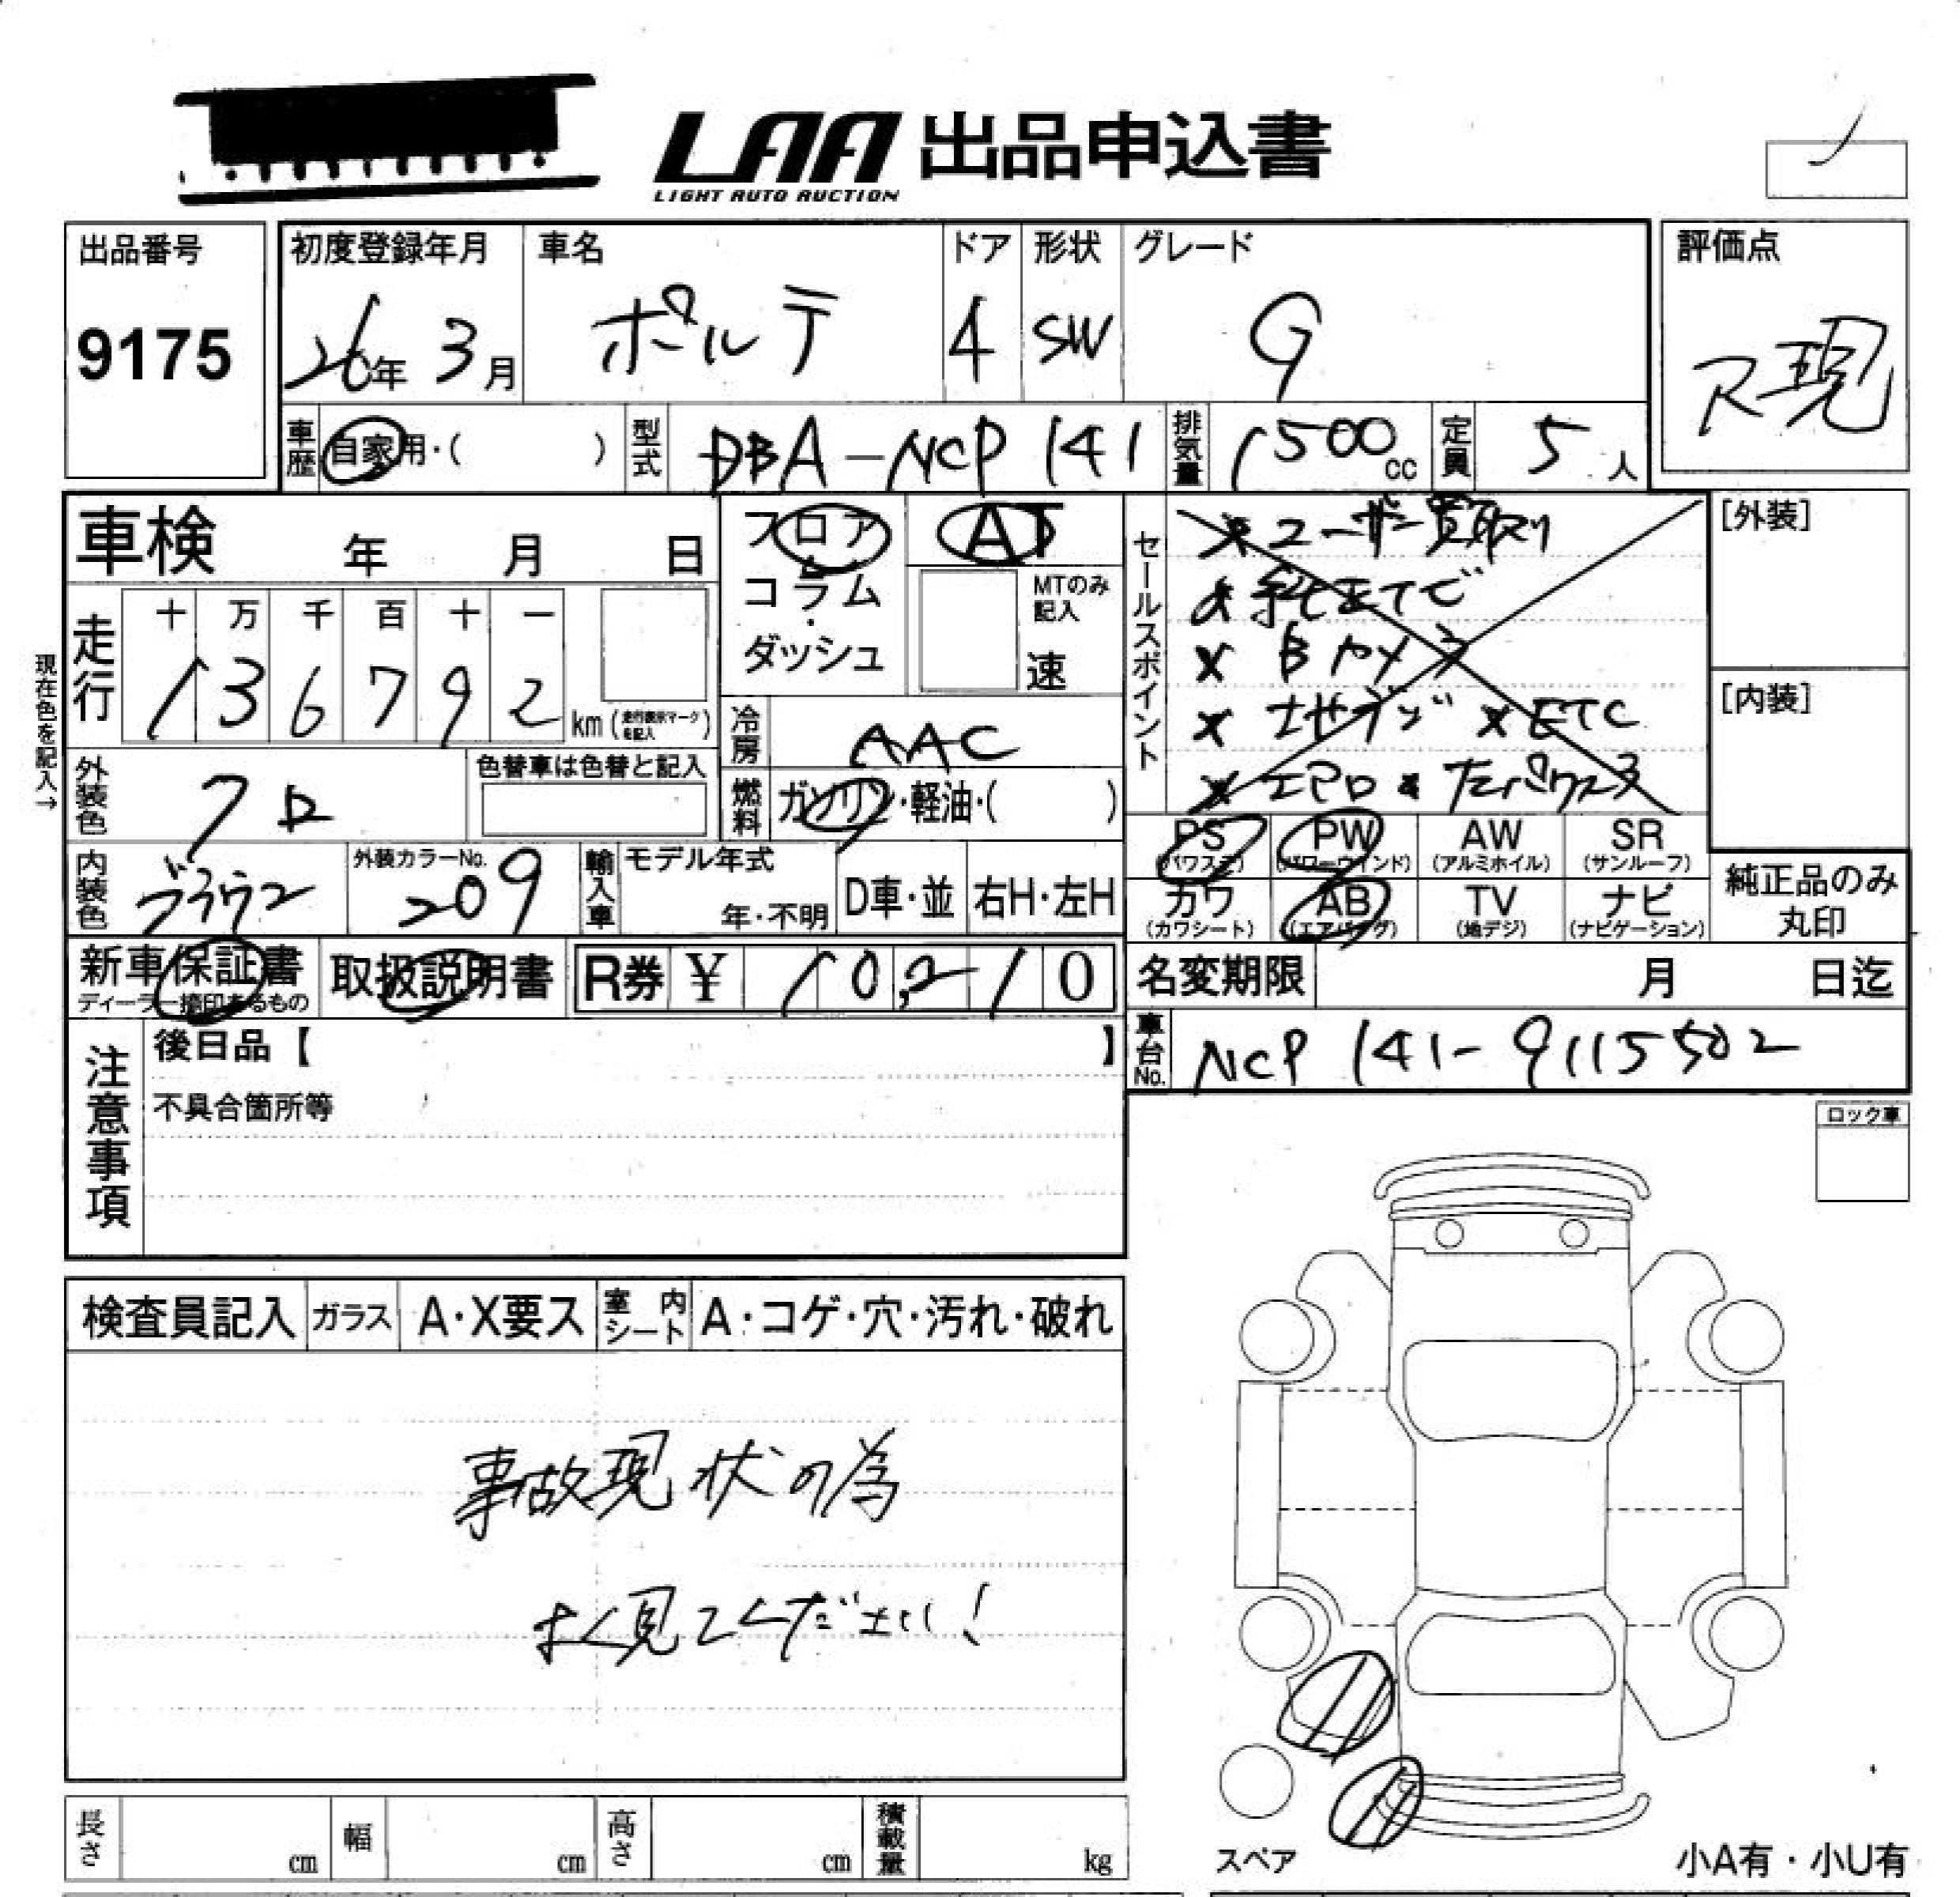 LAA 出品申込書
LIGHT AUTO AUCTION
出品番号
9175
初度登録年月
26年 3月
車名
ポルテ
ドア
4
形状
SW
グレード
G
評価点
R現
車歴
自家用・( )
型式
DBA-NCP141
排気量
1500cc
定員
5人
車検 年 月 日
フロア・
コラム・
ダッシュ
AT
MTのみ記入
速
セールスポイント
× ユーザー買取り
×
× Bカメラ
× ナビ × ETC
×
[外装]
[内装]
現在色を記入→
走行
十 万 千 百 十 一
1 3 6 7 9 2
km (走行表示マークを記入)
冷房
AAC
燃料
ガソリン・軽油・( )
外装色
クロ
色替車は色替と記入
内装色
ブラウン
外装カラーNo.
209
輸入車
モデル年式
年・不明
D車・並
右H・左H
PS
(パワステ)
PW
(パワーウインド)
AW
(アルミホイル)
SR
(サンルーフ)
カワ
(カワシート)
AB
(エアバッグ)
TV
(地デジ)
ナビ
(ナビゲーション)
純正品のみ
丸印
新車保証書
ディーラー捺印あるもの
取扱説明書
R券 ¥ 10,210
名変期限 月 日迄
車台No.
NCP141-9115502
注意事項
後日品【 】
不具合箇所等
ロック車
検査員記入
ガラス
A・X要ス
室内シート
A・コゲ・穴・汚れ・破れ
事故現状の為
よく見てください!
長さ cm
幅 cm
高さ cm
積載量 kg
スペア
小A有・小U有